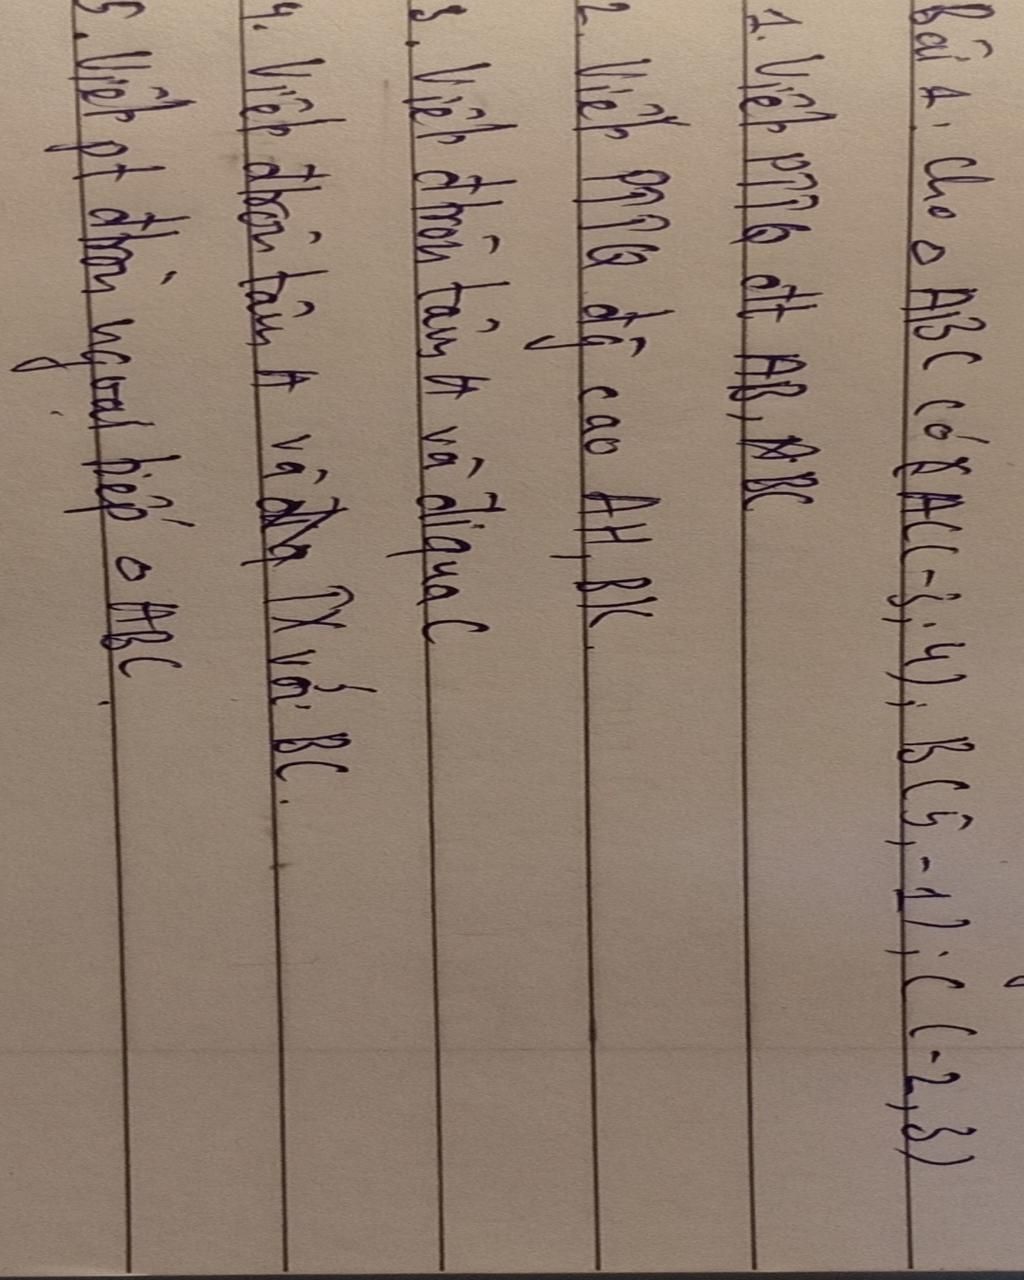 Bài 1. Cho △ ABC có A(-3, 4), B(5, -1), C(-2, 3)
1. Viết PTTQ đt AB, BC
2. Viết PTTQ đg cao AH, BK.
3. Viết đtròn tâm A và đi qua C
4. Viết đtròn tâm A và TX với BC.
5. Viết pt đtròn ngoại tiếp △ ABC.